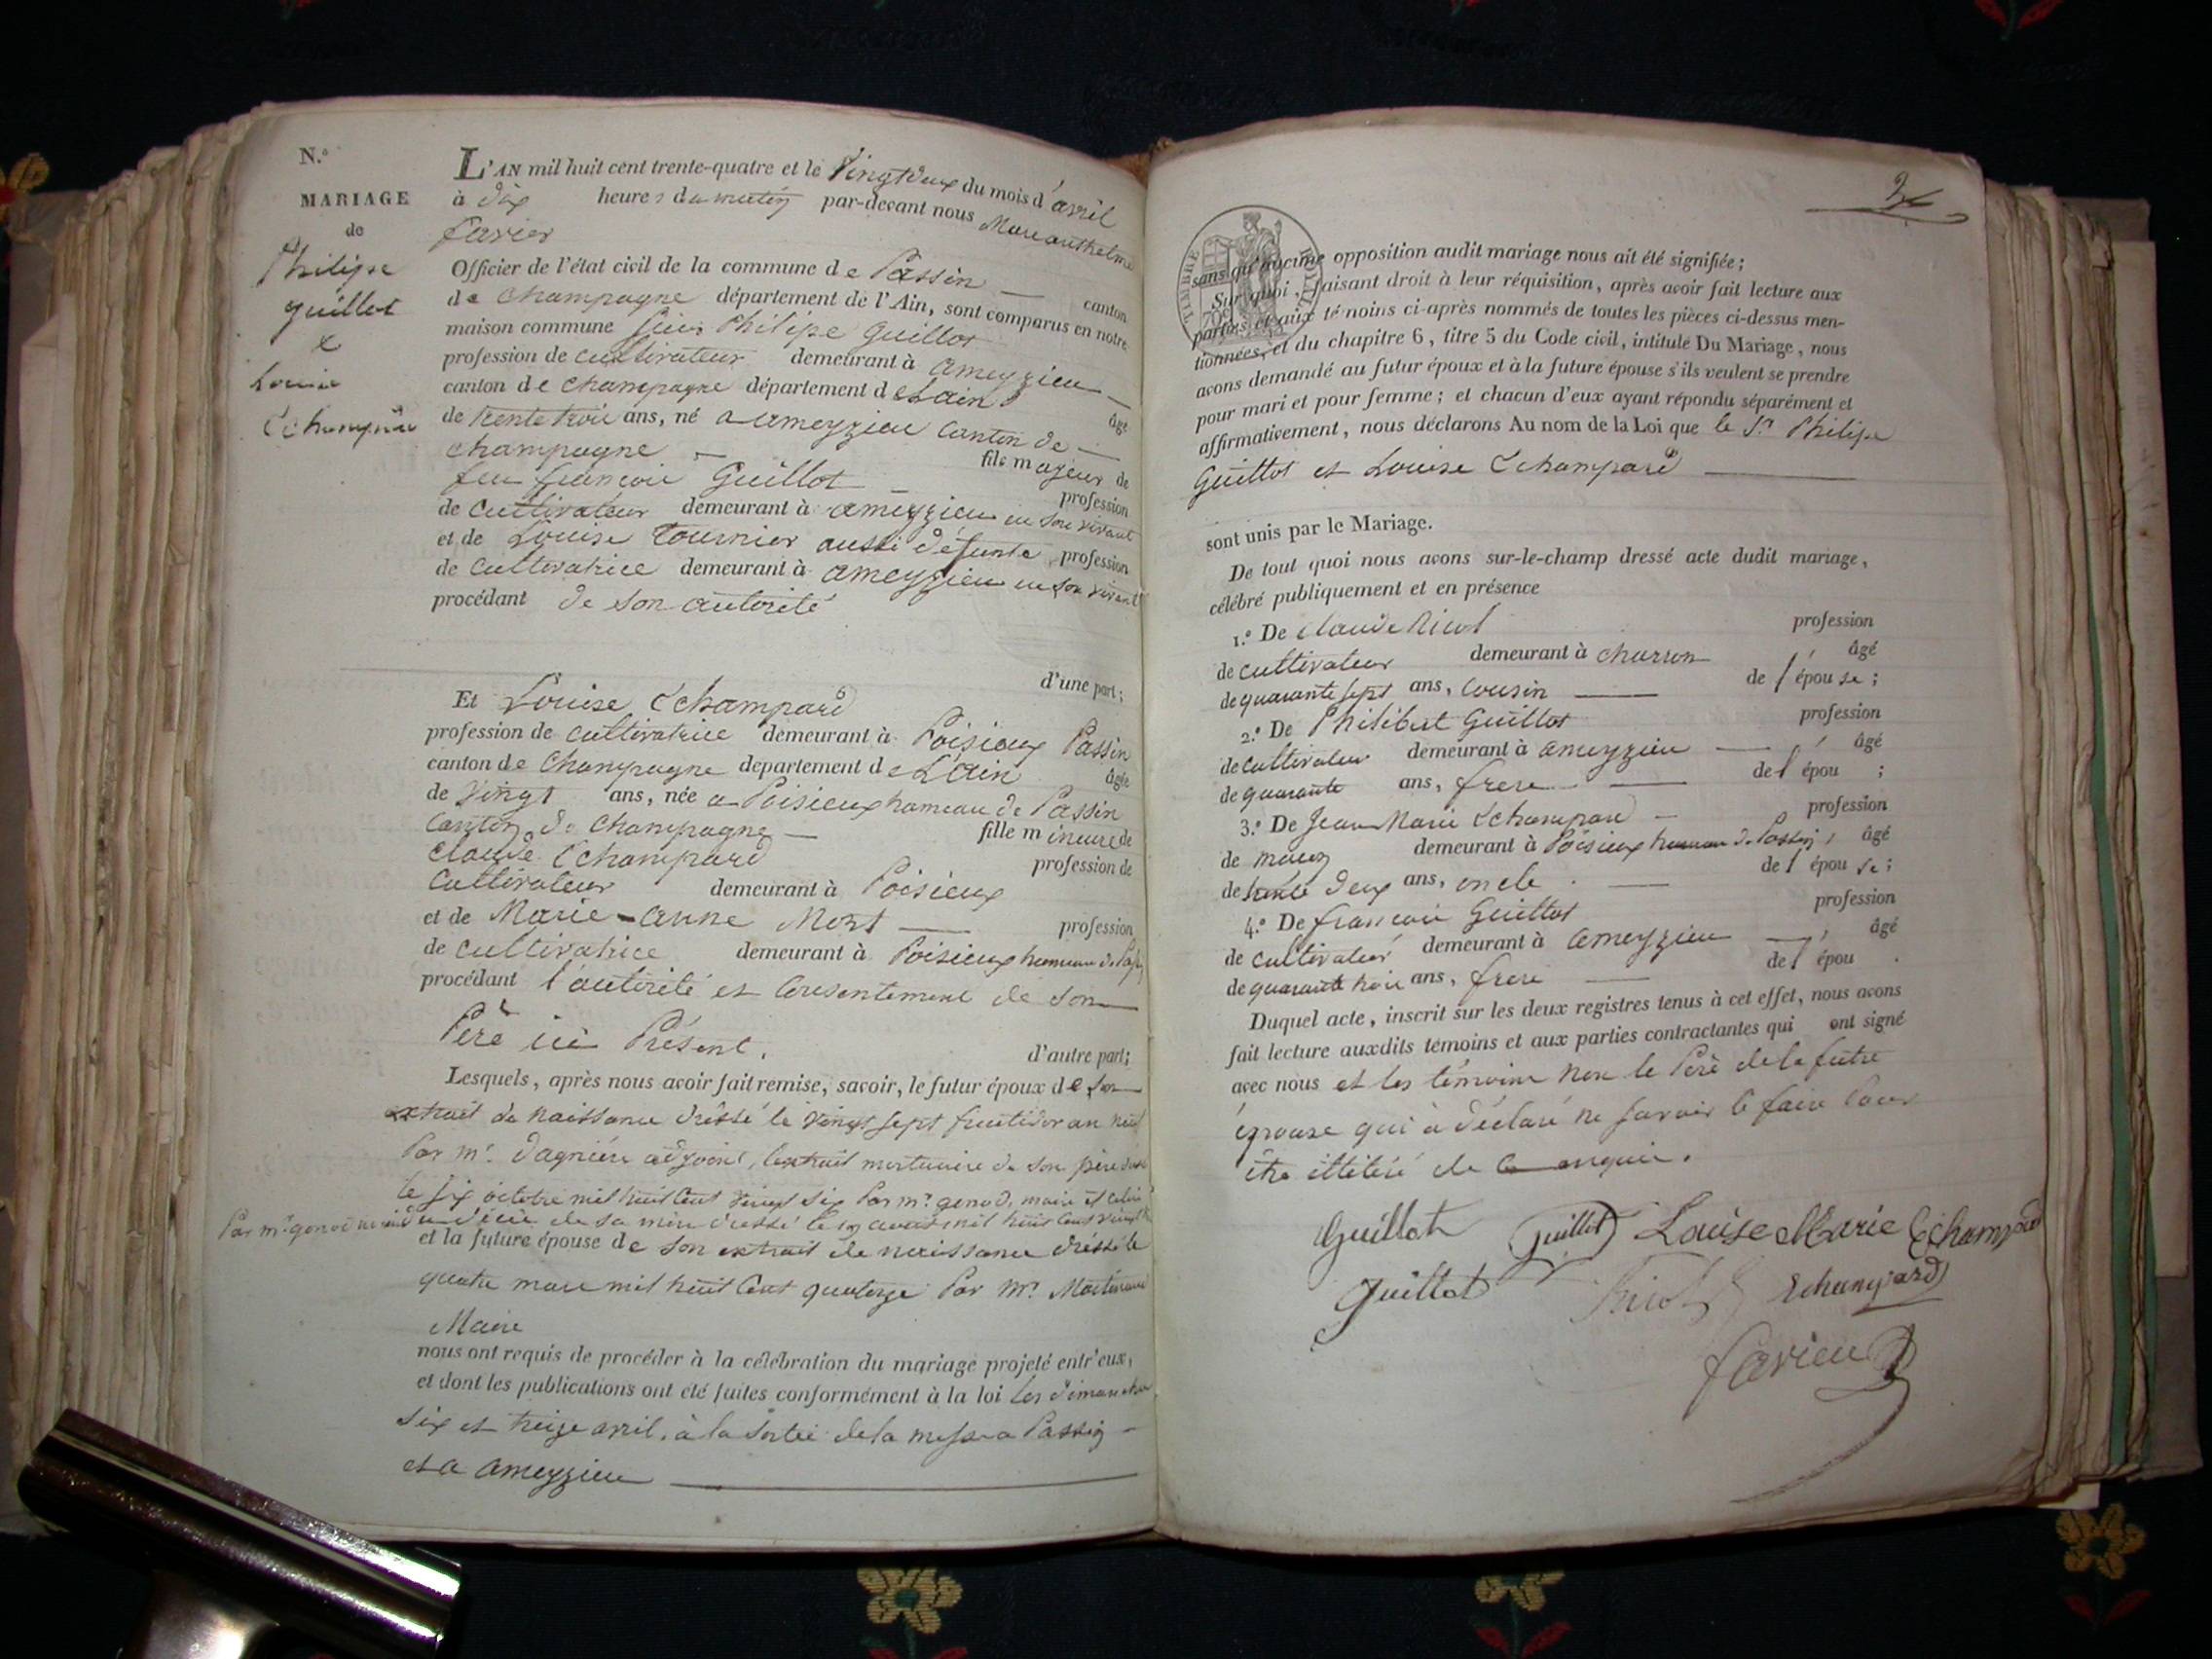 N.°
MARIAGE
de
Philipe
guillot
&
Louise
Echampard
L'AN mil huit cent trente-quatre et le Vingt deux du mois d'avril
à dix heures du matin par-devant nous Marc anthelme
favier
Officier de l'état civil de la commune de Passin canton
de Champagne département de l'Ain, sont comparus en notre
maison commune sieur Philipe Guillot
profession de cultivateur demeurant à ameyzieu
canton de champagne département de Lain âgé
de trente trois ans, né a ameyzieu canton de
champagne fils majeur de
feu françois Guillot profession
de cultivateur demeurant à ameyzieu en son vivant
et de Louise tournier aussi défunte profession
de cultivatrice demeurant à ameyzieu en son vivant
procédant de son autorité
d'une part;
Et Louise Echampard
profession de cultivatrice demeurant à Poisieux Passin
canton de Champagne département de Lain âgée
de Vingt ans, née a Poisieux hameau de Passin
Canton de Champagne fille mineure de
Claude Echampard profession de
Cultivateur demeurant à Poisieux
et de Marie-anne Mort profession
de cultivatrice demeurant à Poisieux hameau de
procédant l'autorité et Consentement de son
Père ici Présent.
d'autre part;
Lesquels, après nous avoir fait remise, savoir, le futur époux de son
extrait de naissance dressé le vingt sept fructidor an huit
Par mr. adjoint, lextrait mortuaire de son père
le six octobre mil huit cent vingt six Par mr. genod, maire et celui
Par mr. genod maire du décès de sa mère dressé le mil huit cent
et la future épouse de son extrait de naissance dressé le
quatre mars mil huit Cent quatorze Par mr.
Maire
nous ont requis de procéder à la célébration du mariage projeté entr'eux,
et dont les publications ont été faites conformément à la loi les dimanches
six et treize avril, à la sortie de la messe a Passin
et a ameyzieu
2
TIMBRE ROYAL
70c
sans qu'aucune opposition audit mariage nous ait été signifiée;
Sur quoi, faisant droit à leur réquisition, après avoir fait lecture aux
parties et aux témoins ci-après nommés de toutes les pièces ci-dessus men-
tionnées, et du chapitre 6, titre 5 du Code civil, intitulé Du Mariage, nous
avons demandé au futur époux et à la future épouse s'ils veulent se prendre
pour mari et pour femme; et chacun d'eux ayant répondu séparément et
affirmativement, nous déclarons Au nom de la Loi que le Sr. Philipe
Guillot et Louise Echampard
sont unis par le Mariage.
De tout quoi nous avons sur-le-champ dressé acte dudit mariage,
célébré publiquement et en présence
1.° De Claude Nicot profession
de cultivateur demeurant à charron , âgé
de quarante sept ans, cousin de l'épouse;
2.° De Philibert Guillot profession
de cultivateur demeurant à ameyzieu , âgé
de quarante ans, frere de l'épou ;
3.° De Jean Marie Echampard profession
de maçon demeurant à Poisieux hameau de Passin, âgé
de trente deux ans, oncle de l'épouse;
4.° De françois Guillot profession
de cultivateur demeurant à ameyzieu , âgé
de quarante trois ans, frere de l'épou .
Duquel acte, inscrit sur les deux registres tenus à cet effet, nous avons
fait lecture auxdits témoins et aux parties contractantes qui ont signé
avec nous et les témoins non le Père de la future
épouse qui à déclaré ne savoir le faire Pour
être illitéré de ce enquis.
Guillot Guillot Louise Marie Echampard
Guillot Nicot Echampard
favier